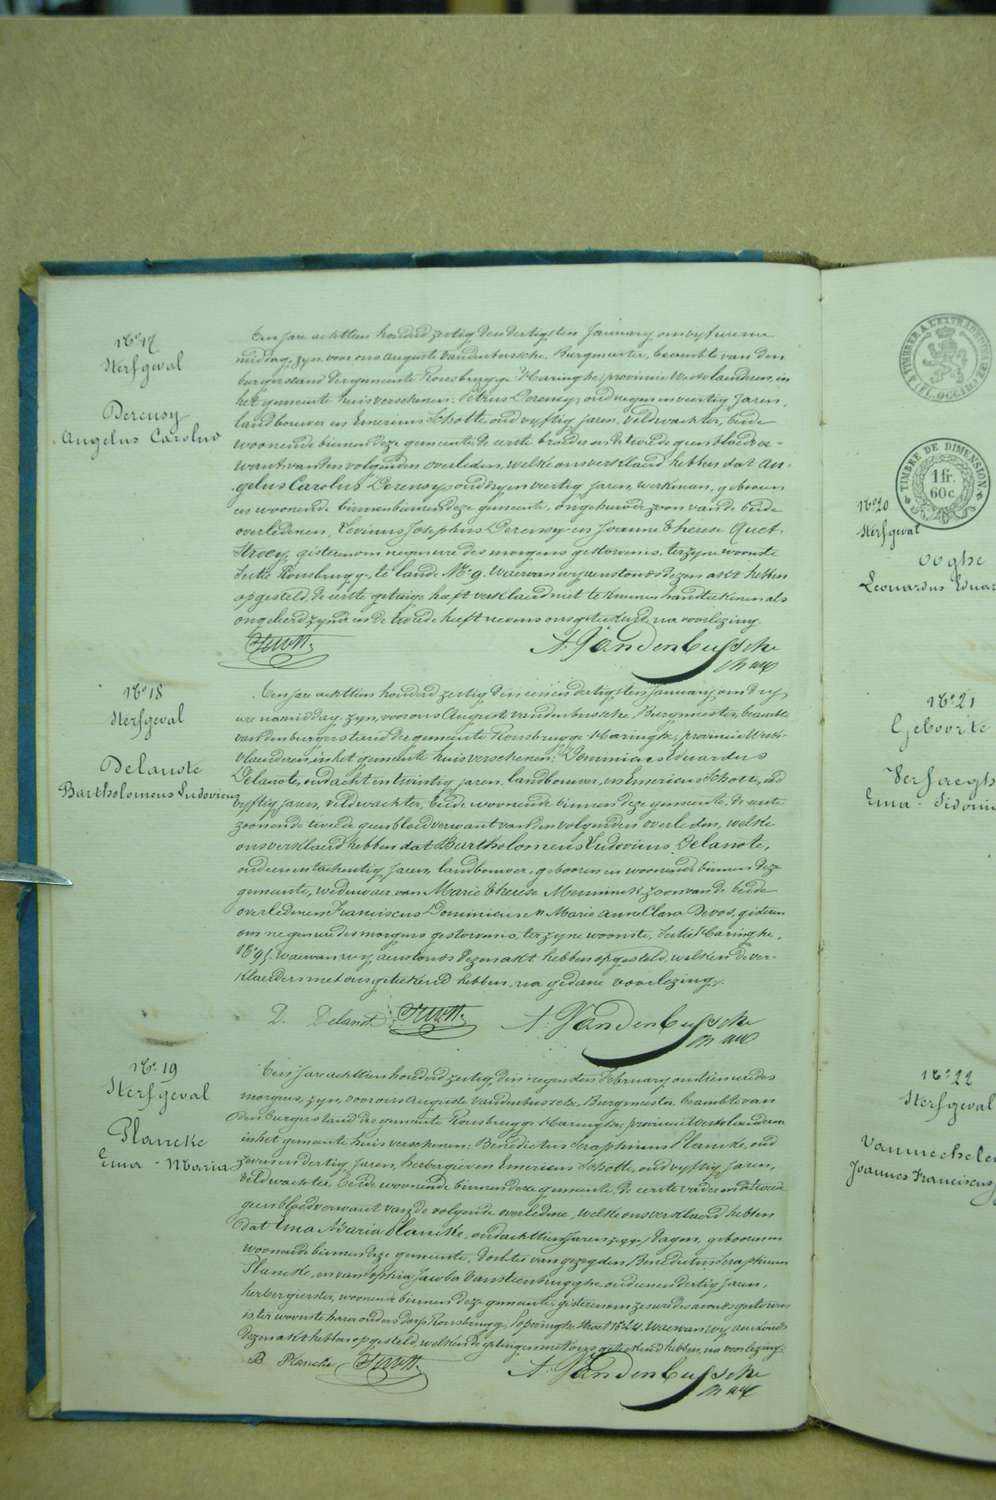 No 17
Sterfgeval
Dereusy
Angelus Carolus
Een jare achttien honderd zestig den dertigsten January, om vyf uren na
middag, zyn voor ons Auguste Vandenbussche, Burgmeester, beambte van den
burgerstand der gemeente Rousbrugge Haringhe, provincie Westvlaendren, in
het gemeente huis verschenen: Petrus Dereusy, oud negen en veertig jaren,
landbouwer en Emericus Schotte, oud vyftig jaren, veldwachter, beide
woonende binnen deze gemeente, de eerste broeder en de tweede geen bloedver-
want van den volgenden overleden, welke ons verklaerd hebben dat An-
gelus Carolus Dereusy, oud en veertig jaren, werkman, geboren
en woonende binnen deze gemeente, ongehuwde zoon van de beide
overledenen, Livinus Josephus Dereusy en Joanna Therese Quet-
stroey, gisteren om negen ure des morgens gestorven is, ter zyne woonste
Sectie Rousbrugge, te lande No 9. Waervan wy aenstonds dezen akt hebben
opgesteld, de eerste getuige heeft verklaerd niet te kunnen handteekenen als
ongeleerd zynde en de tweede heeft nevens ons geteekend, na voorlezing.
Schotte
A. Vandenbussche
No 18
Sterfgeval
Delanote
Bartholomeus Ludovicus
Een jare achttien honderd zestig, den een en dertigsten January, om dry
ure namiddag, zyn, voor ons Auguste Vandenbussche, Burgmeester, beambte
van den burgerstand der gemeente Rousbrugge Haringhe, provincie West-
vlaenderen, in het gemeente huis verschenen: Dominicus Eduardus
Delanote, oud acht en twintig jaren, landbouwer, en Emericus Schotte, oud
vyftig jaren, veldwachter, beide woonende binnen deze gemeente, de eerste
zoon en de tweede geen bloedverwant van den volgenden overleden, welke
ons verklaerd hebben dat Bartholomeus Ludovicus Delanote,
oud een en tachentig jaren, landbouwer, geboren en woonende binnen deze
gemeente, weduwaer van Marie Therese Merminck, zoon van de beide
overledenen Franciscus Dominicus en Marie Anne Clara Devos, gisteren
om negen ure des morgens gestorven is, ter zyne woonste, Sectie Haringhe,
No 91, waervan wy aenstonds dezen akt hebben opgesteld, welken de ver-
klaerders met ons geteekend hebben, na gedane voorlezing.
D. Delanote Schotte
A. Vandenbussche
No 19
Sterfgeval
Plancke
Ema - Maria
Een jare achttien honderd zestig, den negensten February om tien ure des
morgens, zyn, voor ons Auguste Vandenbussche, Burgmeester beambte van
den burgerstand der gemeente Rousbrugge Haringhe, provincie Westvlaenderen
in het gemeente huis verschenen: Benedictus Seraphinus Plancke, oud
zeven en dertig jaren, herbergier en Emericus Schotte, oud vyftig jaren,
veldwachter, beide woonende binnen deze gemeente, de eerste vader en de tweede
geen bloedverwant van de volgende overledene, welke ons verklaerd hebben
dat Ema Maria Plancke, oud achttien jaren dagen, geboren en
woonende binnen deze gemeente, dochter van gezegden Benedictus Seraphinus
Plancke, en van Sophia Jacoba Vansteenbrugghe, oud een en dertig jaren,
herbergierster, woonende binnen deze gemeente, gisteren om zes ure des avonds gestorven
is, ter woonste harer ouders dorp Rousbrugge, Poperinghe straet No 44. Waervan wy aenstonds
dezen akt hebben opgesteld, welken de getuigen met ons geteekend hebben, na voorlezing.
B Plancke Schotte
A. Vandenbussche
TIMBRE DE DIMENSION
1 fr.
60 c.
No 20
Sterfgeval
Ooghe
Leonardus
No 21
Geboorte
Ema
No 22
Sterfgeval
Joannes Franciscus